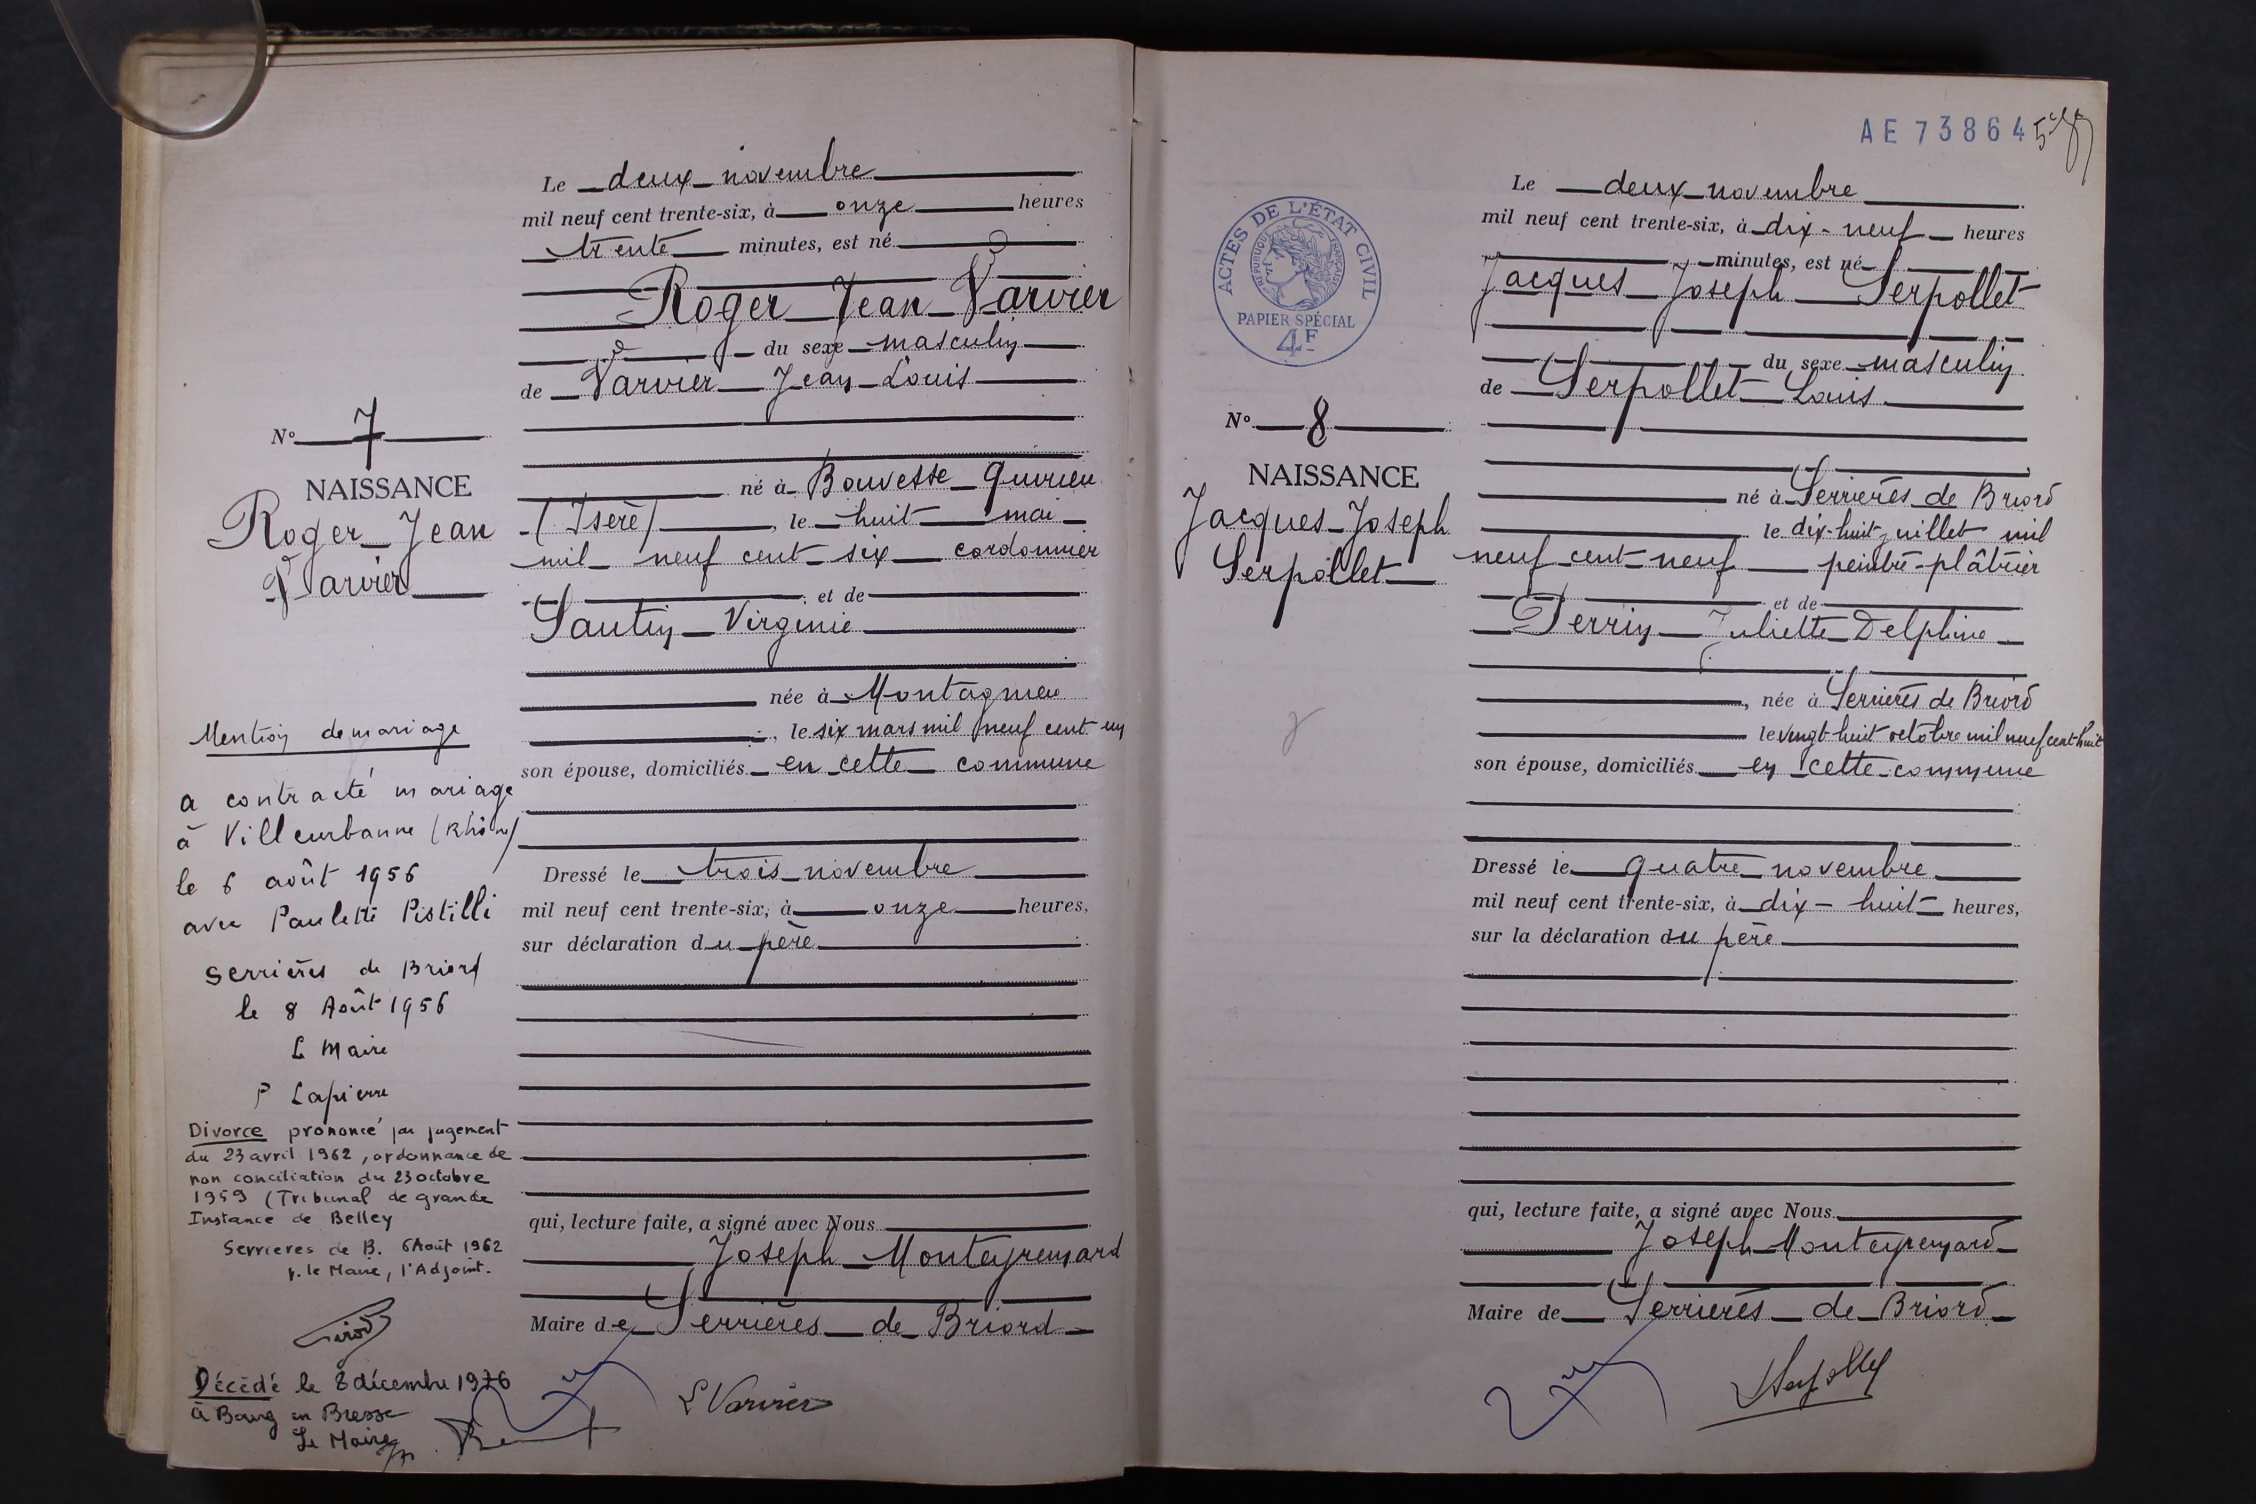 Le deux novembre
mil neuf cent trente-six, à onze heures
trente minutes, est né
Roger Jean Varvier
du sexe masculin
de Varvier Jean Louis
N° 7
NAISSANCE
Roger Jean
Varvier
né à Bouvesse Quirieu
(Isère), le huit mai
mil neuf cent six cordonnier
et de
Sautin Virginie
née à Montagnieu
, le six mars mil neuf cent un
son épouse, domiciliés en cette commune
Dressé le trois novembre
mil neuf cent trente-six, à onze heures,
sur déclaration du père
qui, lecture faite, a signé avec Nous
Joseph Monteyremard
Maire de Serrières de Briord
L Varvier
Mention de mariage
a contracté mariage
à Villeurbanne (Rhône)
le 6 août 1956
avec Paulette Pistilli
Serrières de Briord
le 8 Août 1956
Le Maire
P Lapierre
Divorce prononcé par jugement
du 23 avril 1962, ordonnance de
non conciliation du 23 octobre
1959 (Tribunal de grande
Instance de Belley
Serrieres de B. 6 Août 1962
p. le Maire, l'Adjoint.
Décédé le 8 décembre 1976
à Bourg en Bresse
Le Maire
AE 73864
ACTES DE L'ÉTAT CIVIL
RÉPUBLIQUE FRANÇAISE
PAPIER SPÉCIAL
4F
Le deux novembre
mil neuf cent trente-six, à dix-neuf heures
minutes, est né
Jacques Joseph Serpollet
du sexe masculin
de Serpollet Louis
N° 8
NAISSANCE
Jacques Joseph
Serpollet
né à Serrières de Briord
le dix-huit juillet mil
neuf cent neuf peintre-plâtrier
et de
Perrin Juliette Delphine
, née à Serrières de Briord
le vingt huit octobre mil neuf cent huit
son épouse, domiciliés en cette commune
Dressé le quatre novembre
mil neuf cent trente-six, à dix-huit heures,
sur la déclaration du père
qui, lecture faite, a signé avec Nous
Joseph Monteyremard
Maire de Serrières de Briord